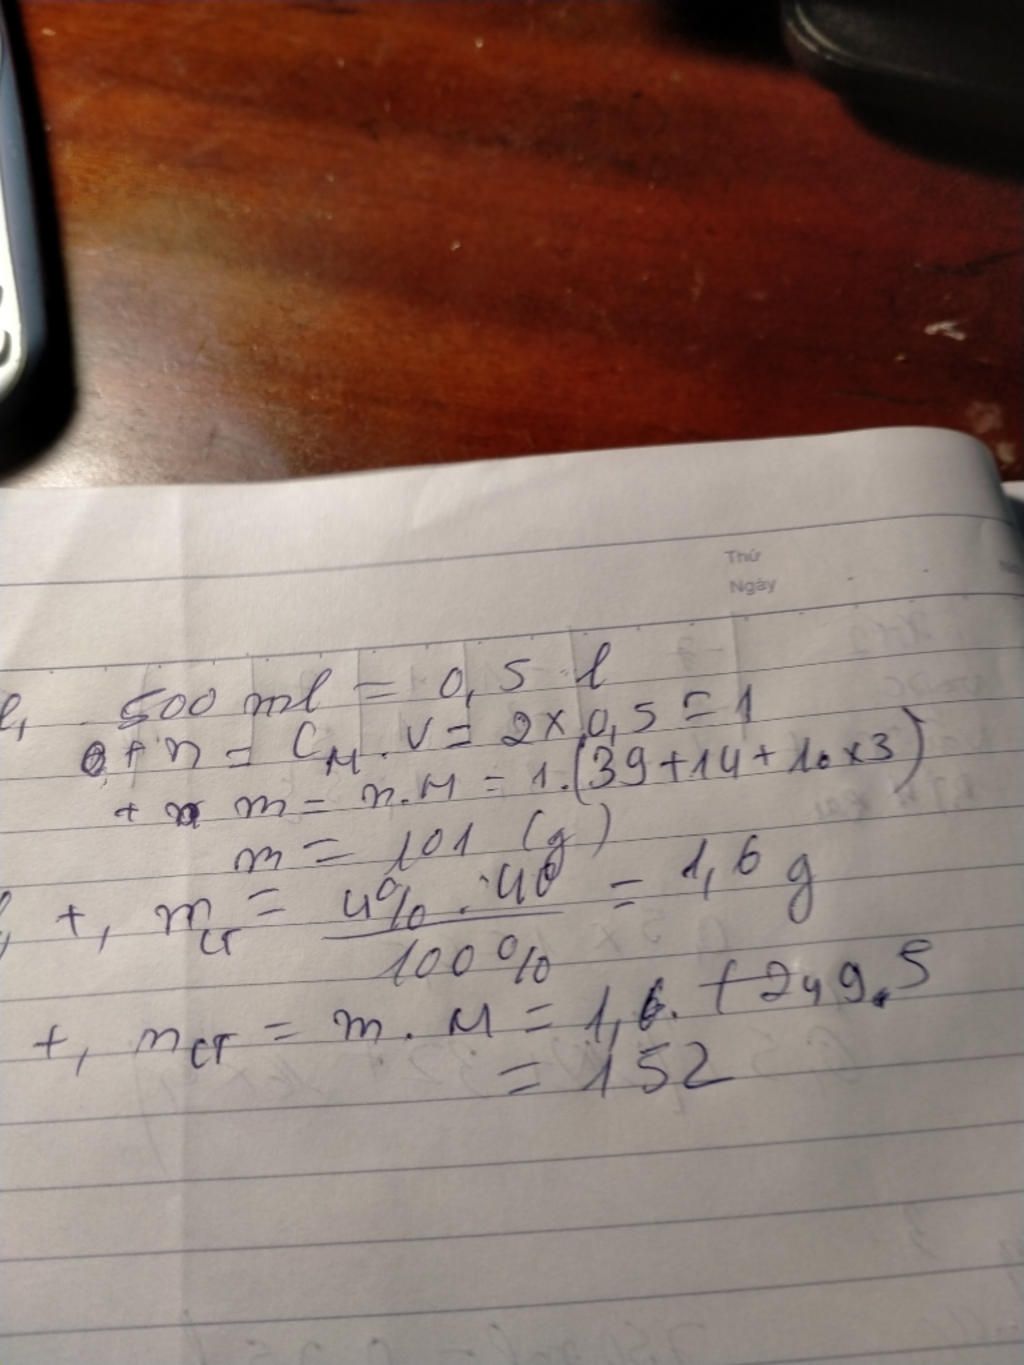 Thứ
Ngày
e, 500 ml = 0,5 l
+ n = CM . V = 2 x 0,5 = 1
+ m = n.M = 1.(39+14+16x3)
m = 101 (g)
+, mCT = 4% . 40 / 100% = 1,6 g
+, nCT = m . M = 1,6.
= 152